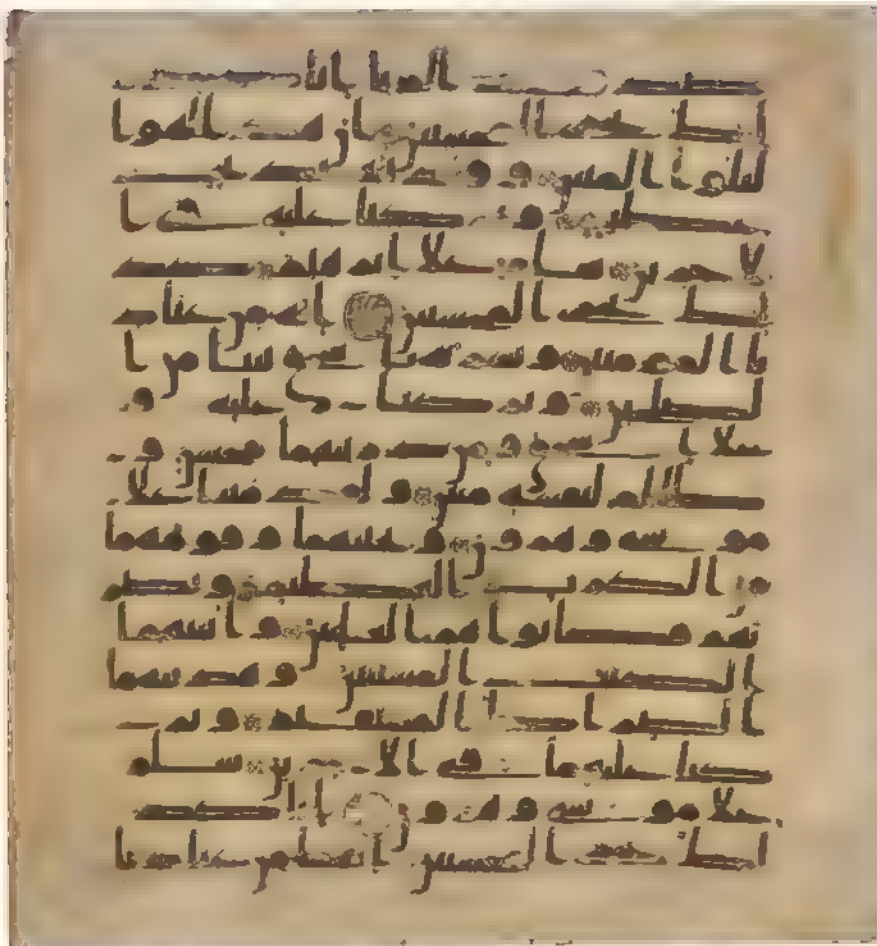 صدقت الريا انا كذلك
نجزى المحسنين ان هذا لهو ا
لبلوا المبين وفدينه بذبح
عظيم وتركنا عليه فى ا
لاخرين سلم على ابرهيم كذلك
نجزى المحسنين انه من عباد
نا المومنين وبشرنه باسحق نبيا من ا
لصلحين وبركنا عليه و
على اسحق ومن ذريتهما محسن و
ظالم لنفسه مبين ولقد مننا على
موسى وهرون ونجينهما وقومهما
من الكرب العظيم ونصر
نهم فكانوا هم الغلبين واتينهما
الكتب المستبين وهدينهما
الصرط المستقيم وتر
كنا عليهما فى الاخرين سلم
على موسى وهرون انا كذلك
نجزى المحسنين انهما من عبادنا